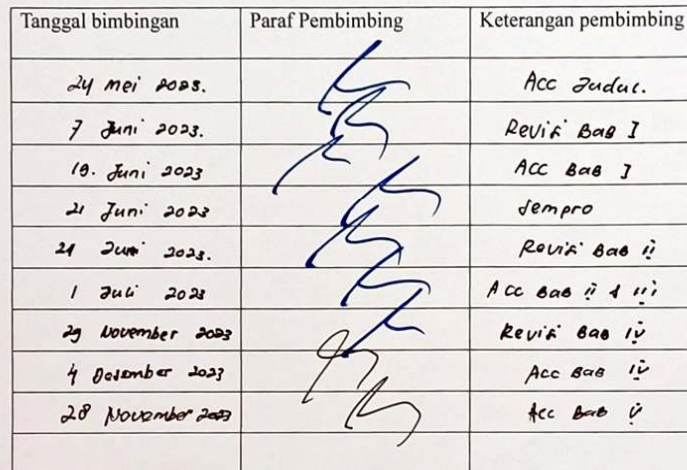 Tanggal bimbingan Paraf Pembimbing Keterangan pembimbing
24 mei 2023. Acc Judul.
7 Juni 2023. Revisi Bab I
19. Juni 2023 Acc Bab I
21 Juni 2023 Sempro
2023. Revisi Bab ii
1 Juli 2023 Acc Bab ii & iii
29 November 2023 Revisi Bab iv
4 Desember 2023 Acc Bab iv
28 November 2023 Acc Bab v